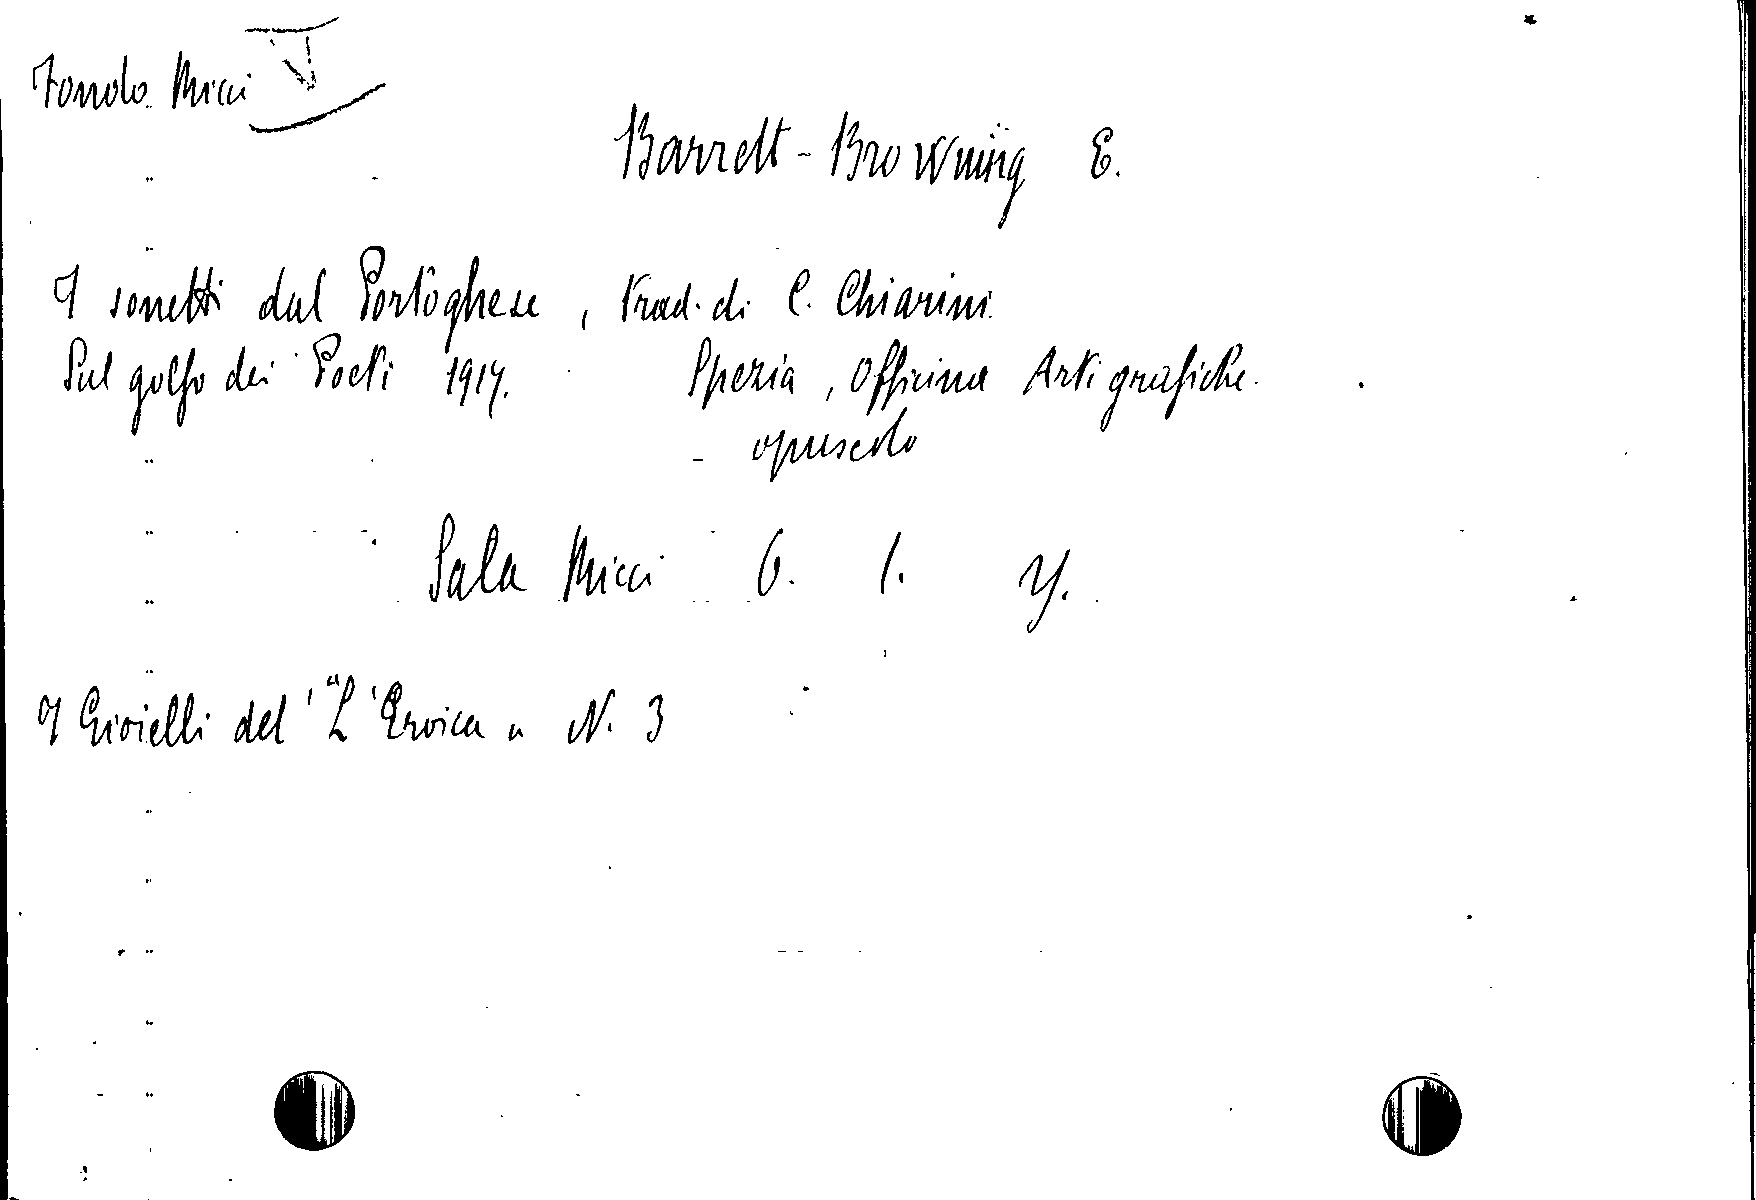 Fondo Micci V
Barrett - Browning E.
I sonetti dal Portoghese, trad. di C. Chiarini
Sul golfo dei Poeti 1917. Spezia, Officina Arti grafiche.
- opuscolo
Sala Micci 6. 1. 7.
I Gioielli del "L'Eroica" N. 3